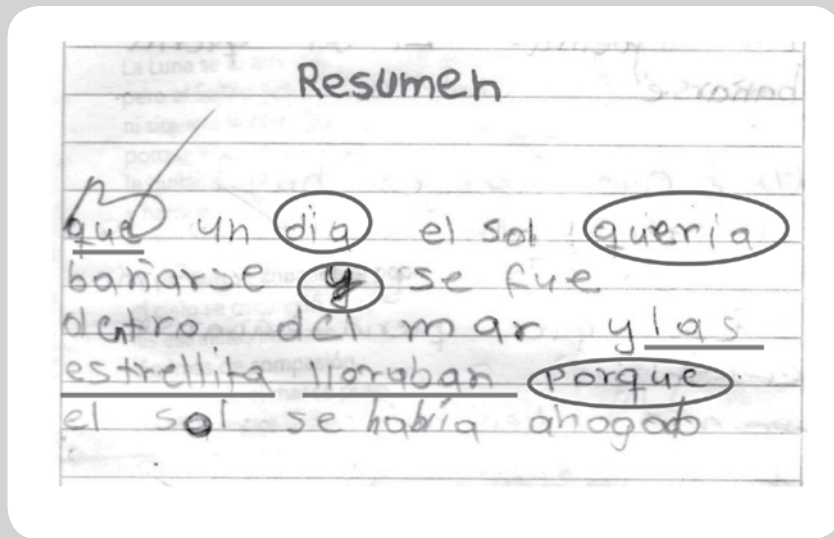 Resumen
que un dia el sol queria
bañarse y se fue
detro del mar y las
estrellita lloraban porque.
el sol se había ahogado